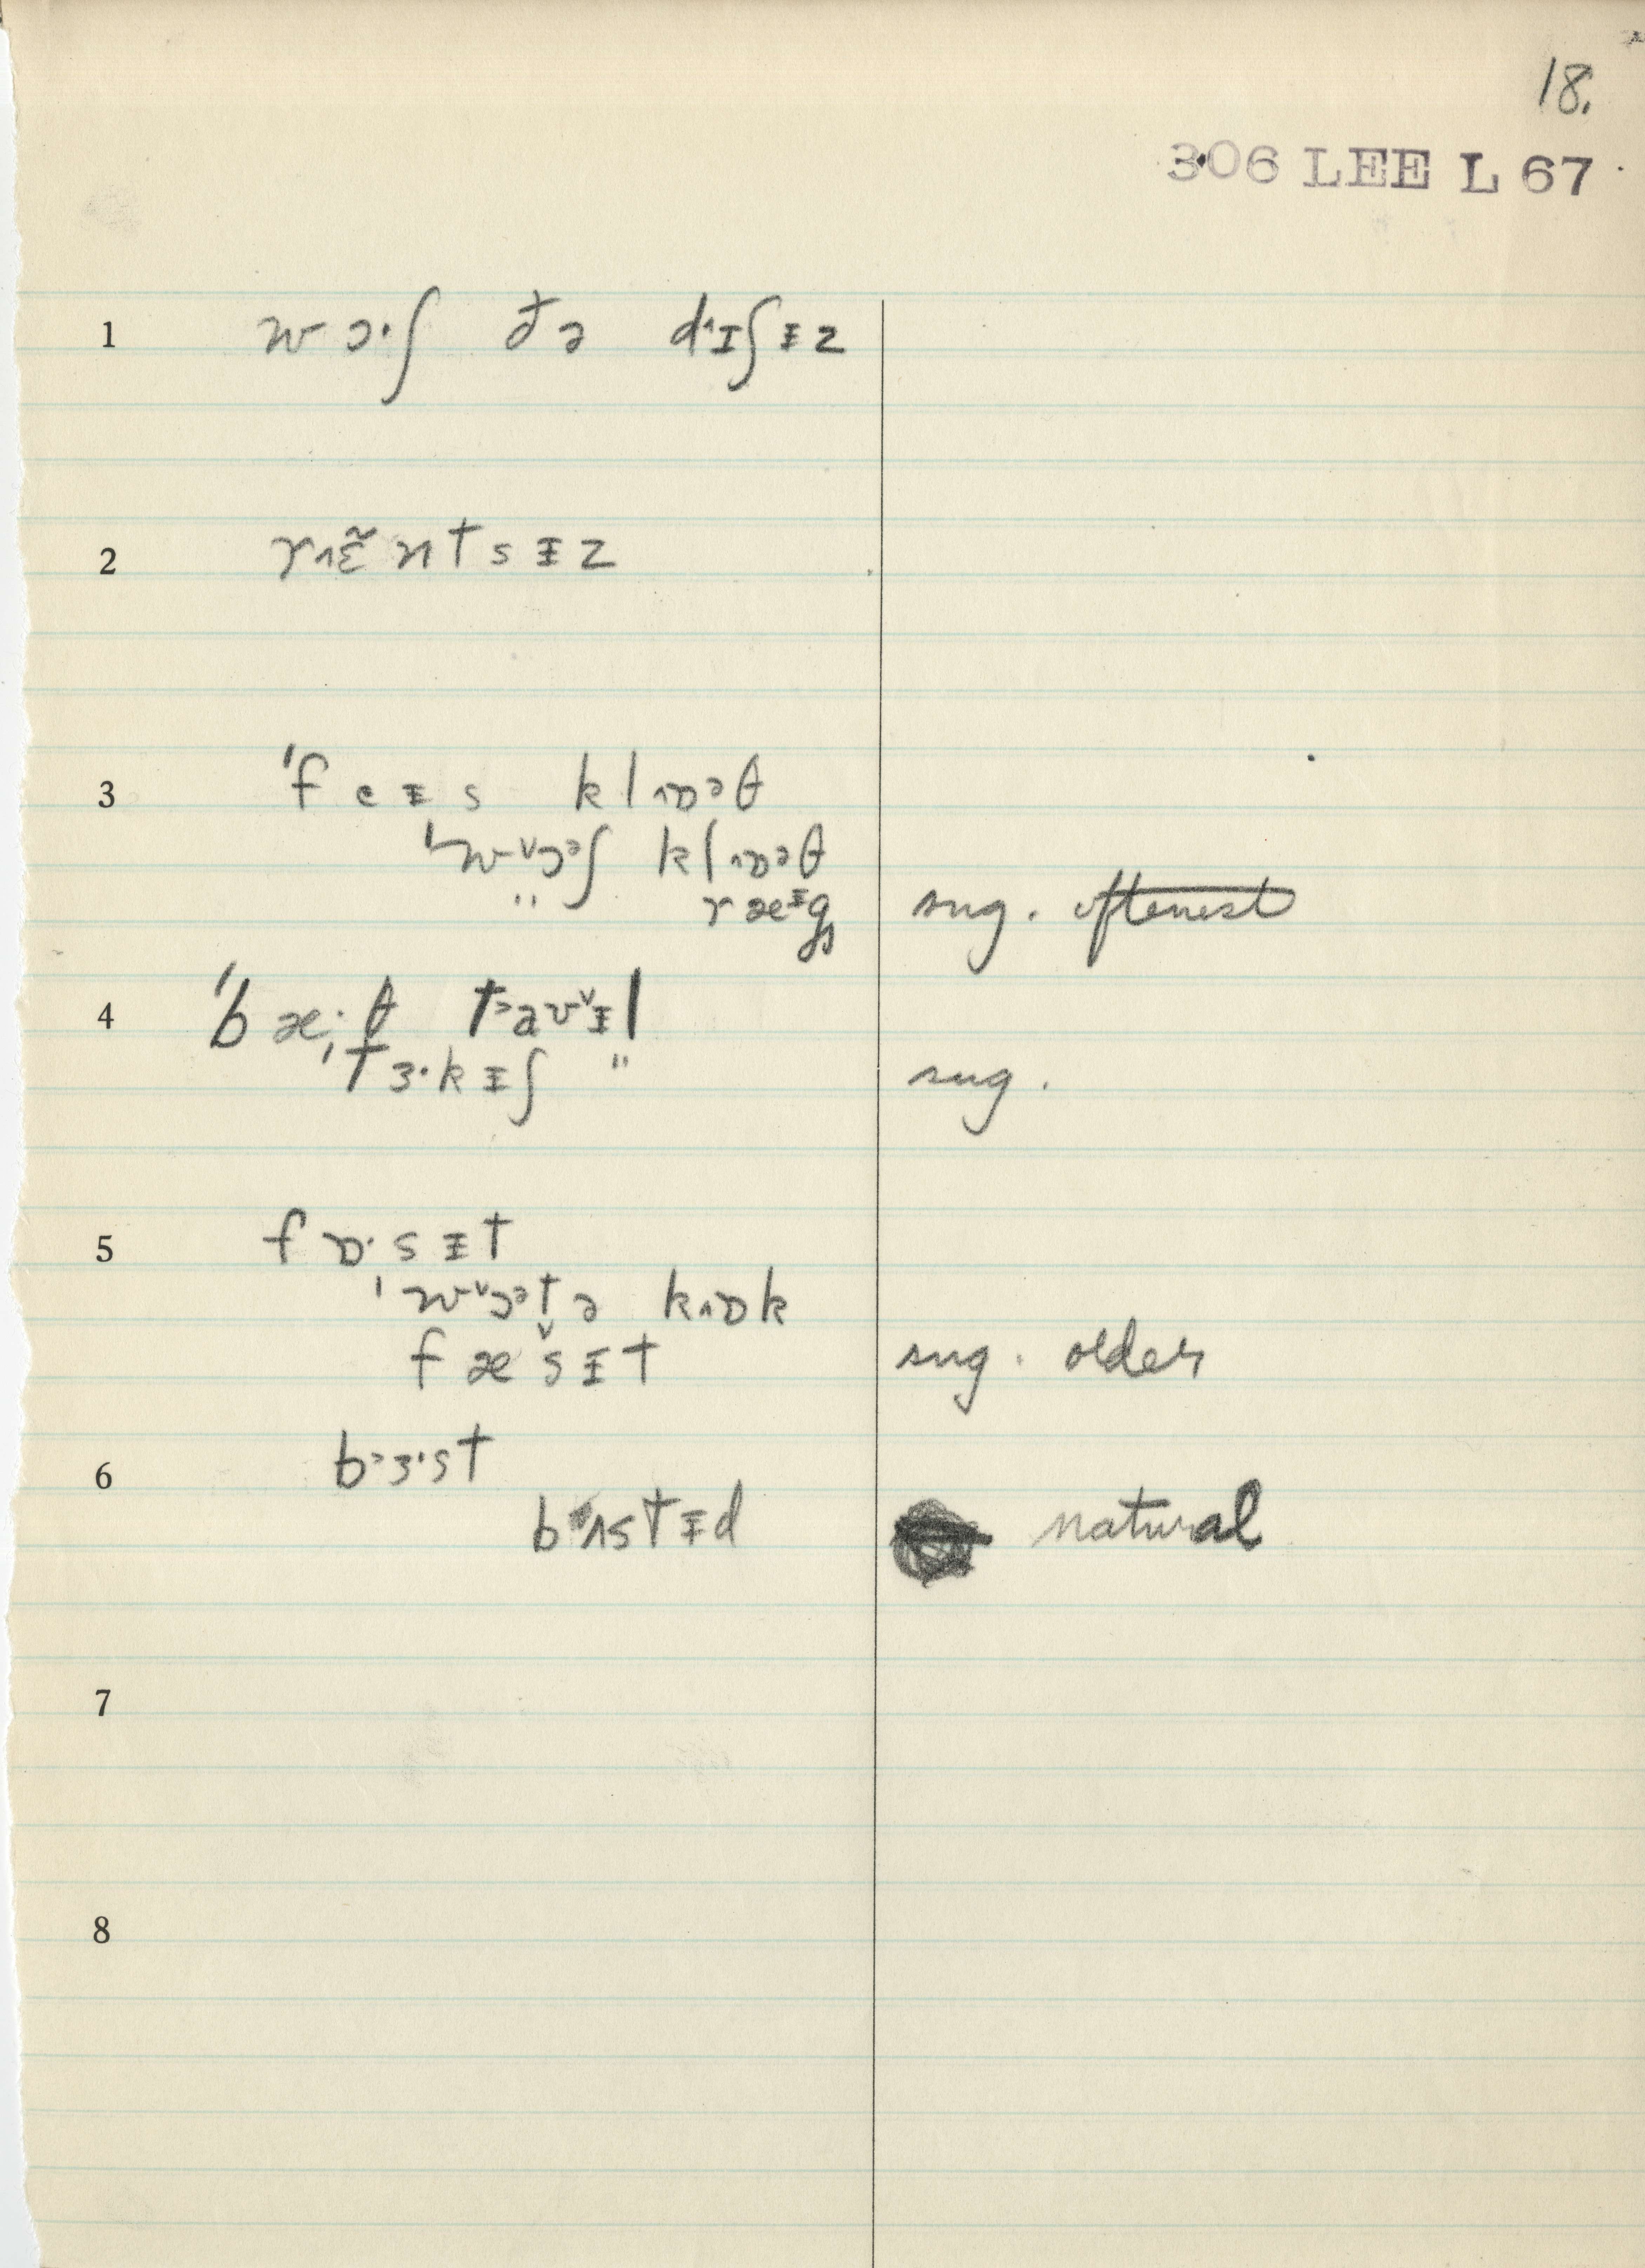 18.
306 LEE L 67
1 wɔ·ʃ ðə d˄ɪʃɪ̵z
2 r˄ɛ̃ntsɪ̵z
3 ˈfeɪ̵s kl˄ɒᵊθ
ˈw˅ɔᵊʃ kl˄ɒᵊθ
" ræᶤgs sug. oftenest
4 ˈbæ·θ t˃aʊ˅ɪ̵l
ˈtɜ·kɪ̵ʃ " sug.
5 fɒ·sɪ̵t
ˈw˅ɔᵊtə k˄ɒk
fæ˅sɪ̵t sug. older
6 b˃ɜ·st
bʌstɪ̵d natural
7
8